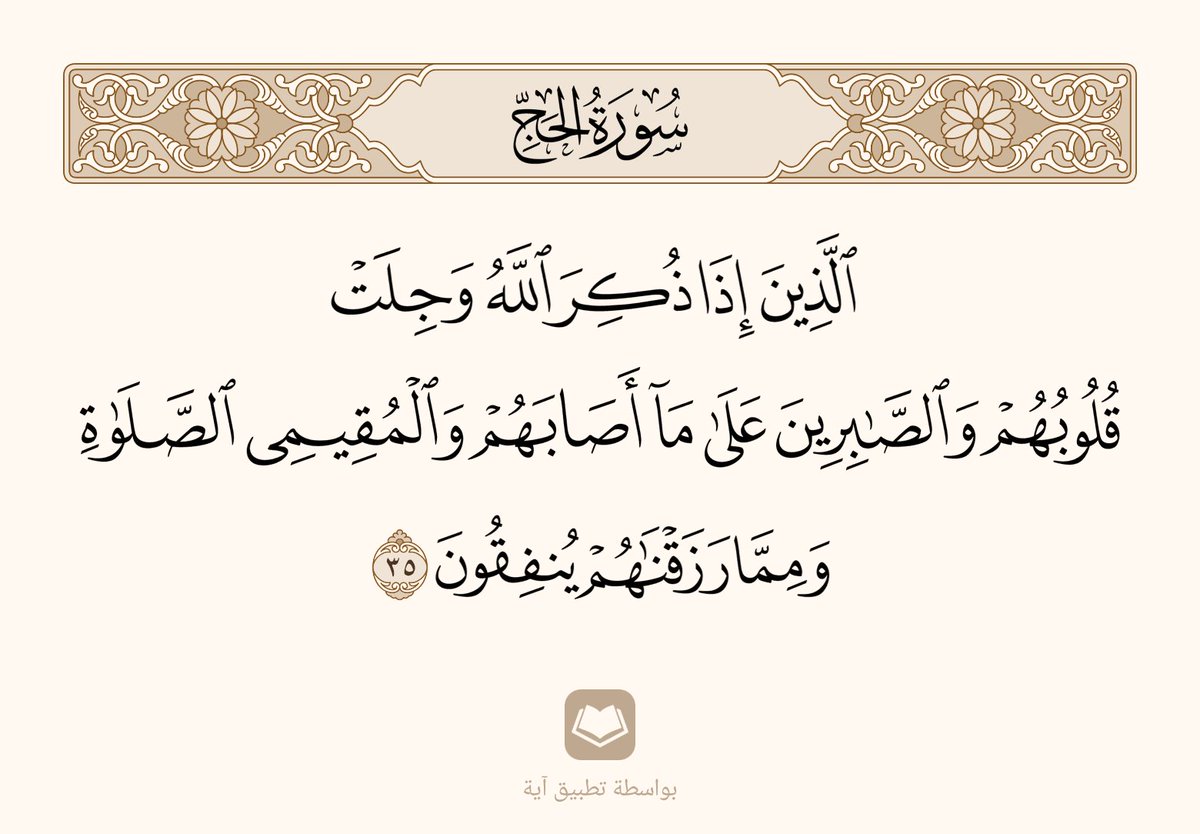 سُورَةُ الحَجِّ
ٱلَّذِينَ إِذَا ذُكِرَ ٱللَّهُ وَجِلَتۡ
قُلُوبُهُمۡ وَٱلصَّٰبِرِينَ عَلَىٰ مَآ أَصَابَهُمۡ وَٱلۡمُقِيمِي ٱلصَّلَوٰةِ
وَمِمَّا رَزَقۡنَٰهُمۡ يُنفِقُونَ ٣٥
بواسطة تطبيق آية